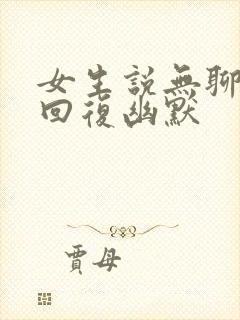 女生說無聊
回復幽默
賈母